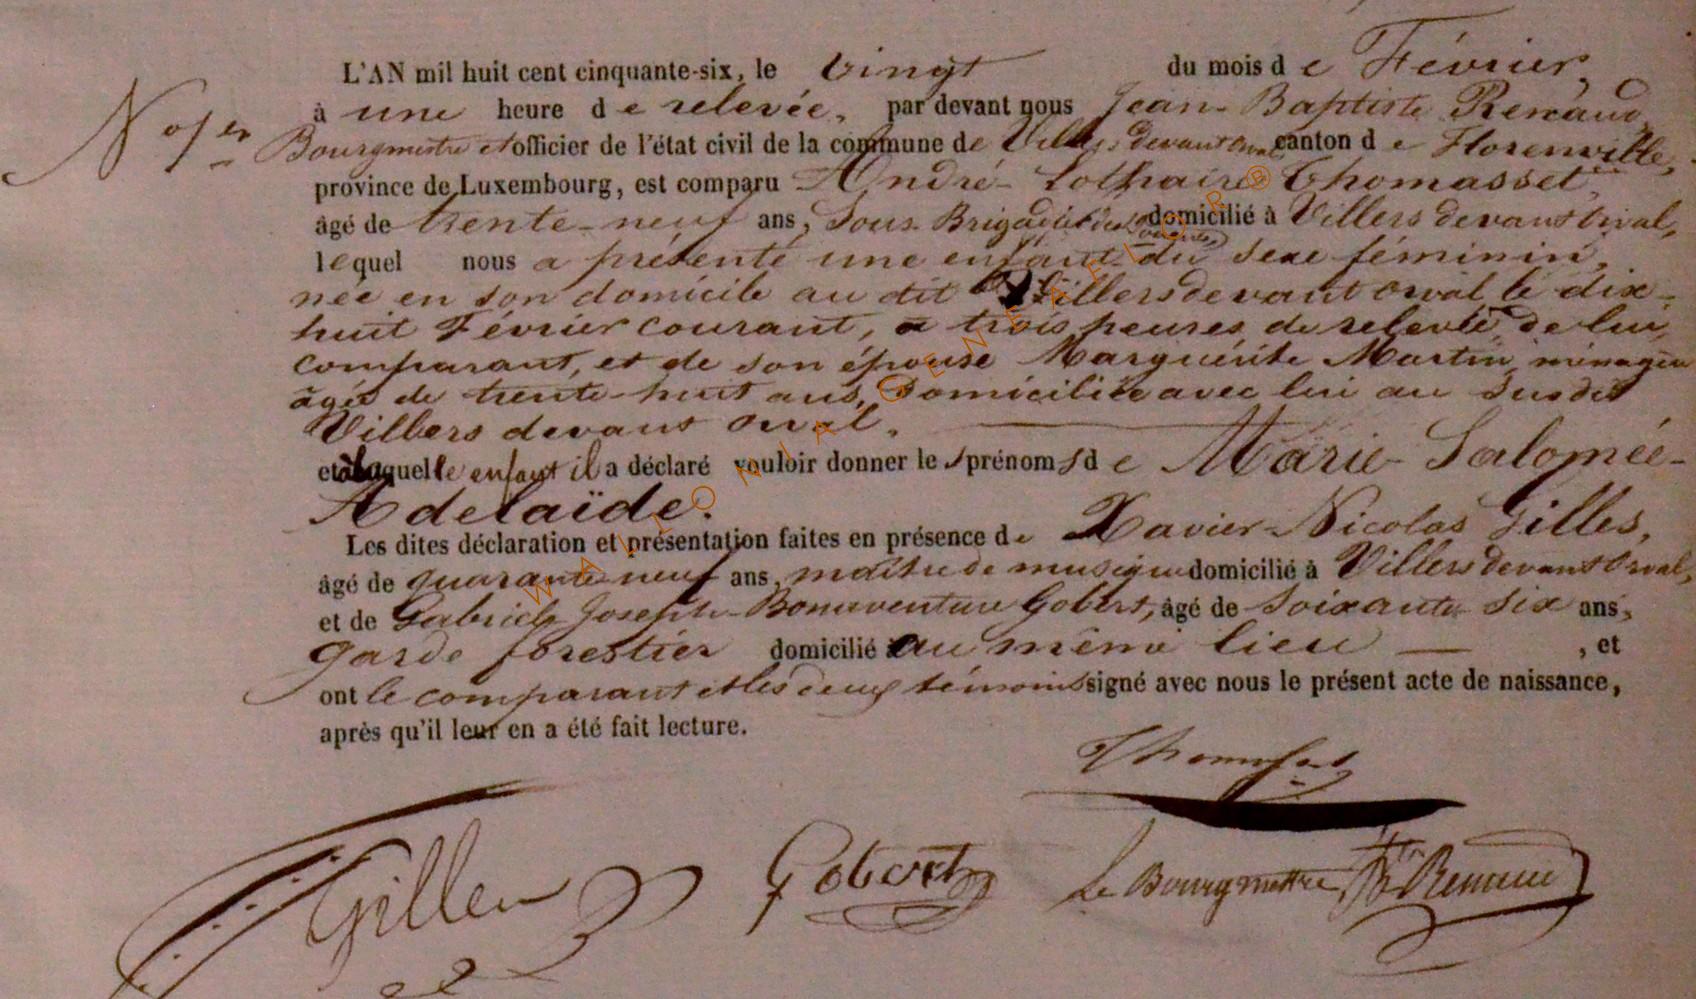 L'AN mil huit cent cinquante-six, le vingt du mois de Février,
à une heure de relevée, par devant nous Jean-Baptiste Renaud,
Bourgmestre et officier de l'état civil de la commune de Villers devant Orval canton de Florenville,
province de Luxembourg, est comparu André-Lothaire Thomasset,
âgé de trente-neuf ans, Sous-Brigadier des Douanes, domicilié à Villers devant Orval,
lequel nous a présenté une enfant du sexe féminin,
née en son domicile au dit Villers devant Orval, le dix-
huit Février courant, à trois heures de relevée, de lui,
comparant, et de son épouse Marguérite Martin, ménagère
âgée de trente-huit ans, domiciliée avec lui au susdit
Villers devant Orval.
et à laquelle enfant il a déclaré vouloir donner les prénoms de Marie-Salomée-
Adelaïde.
Les dites déclaration et présentation faites en présence de Xavier-Nicolas Gilles,
âgé de quarante-neuf ans, maître de musique domicilié à Villers devant Orval,
et de Gabriel-Joseph-Bonaventure Gobert, âgé de soixante-six ans,
garde forestier domicilié au même lieu — , et
ont le comparant et les deux témoins signé avec nous le présent acte de naissance,
après qu'il leur en a été fait lecture.
Thomasset
Gilles Gobert Le Bourgmestre, Renaud
WALLONIA GENEALOR ®